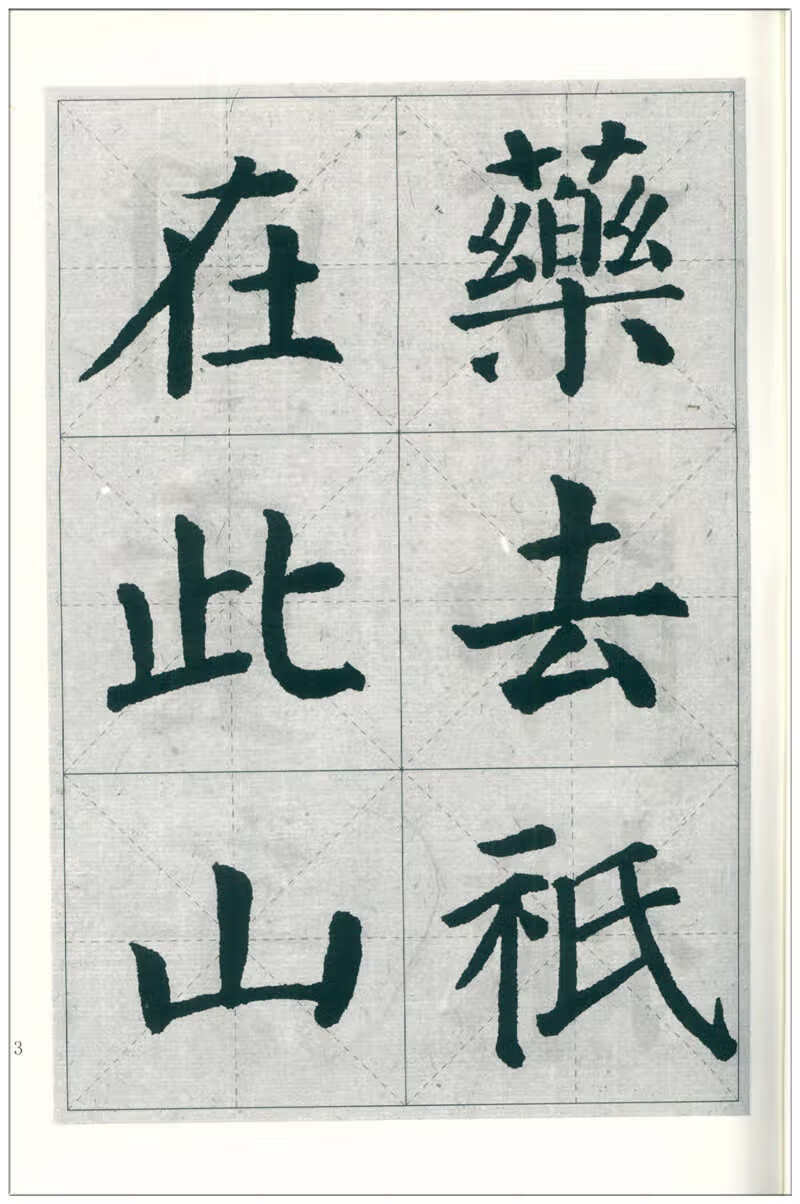 藥去祇
在此山
3